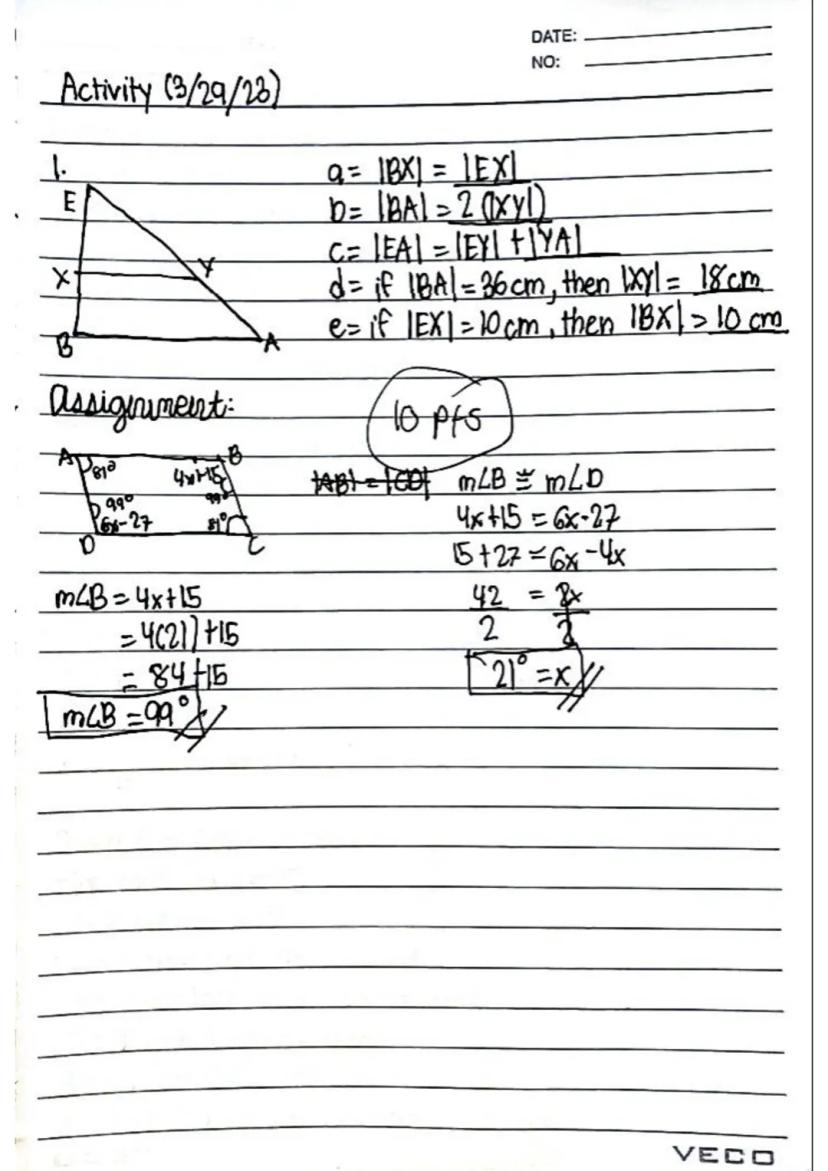 DATE:
NO:
Activity (3/29/23)
1.
a = |BX| = |EX|
b = |BA| = 2(|XY|)
c = |EA| = |EY| + |YA|
d = if |BA| = 36 cm, then |XY| = 18 cm
e = if |EX| = 10 cm, then |BX| = 10 cm
E
X Y
B A
Assignment:
10 pts
A 81° 4x+15 B
99° 99°
6x-27 81°
D C
|AB| = |CD| m∠B ≅ m∠D
4x+15 = 6x-27
15+27 = 6x-4x
42 = 2x
2 2
21° = x
m∠B = 4x+15
= 4(21)+15
= 84+15
m∠B = 99°
VECO